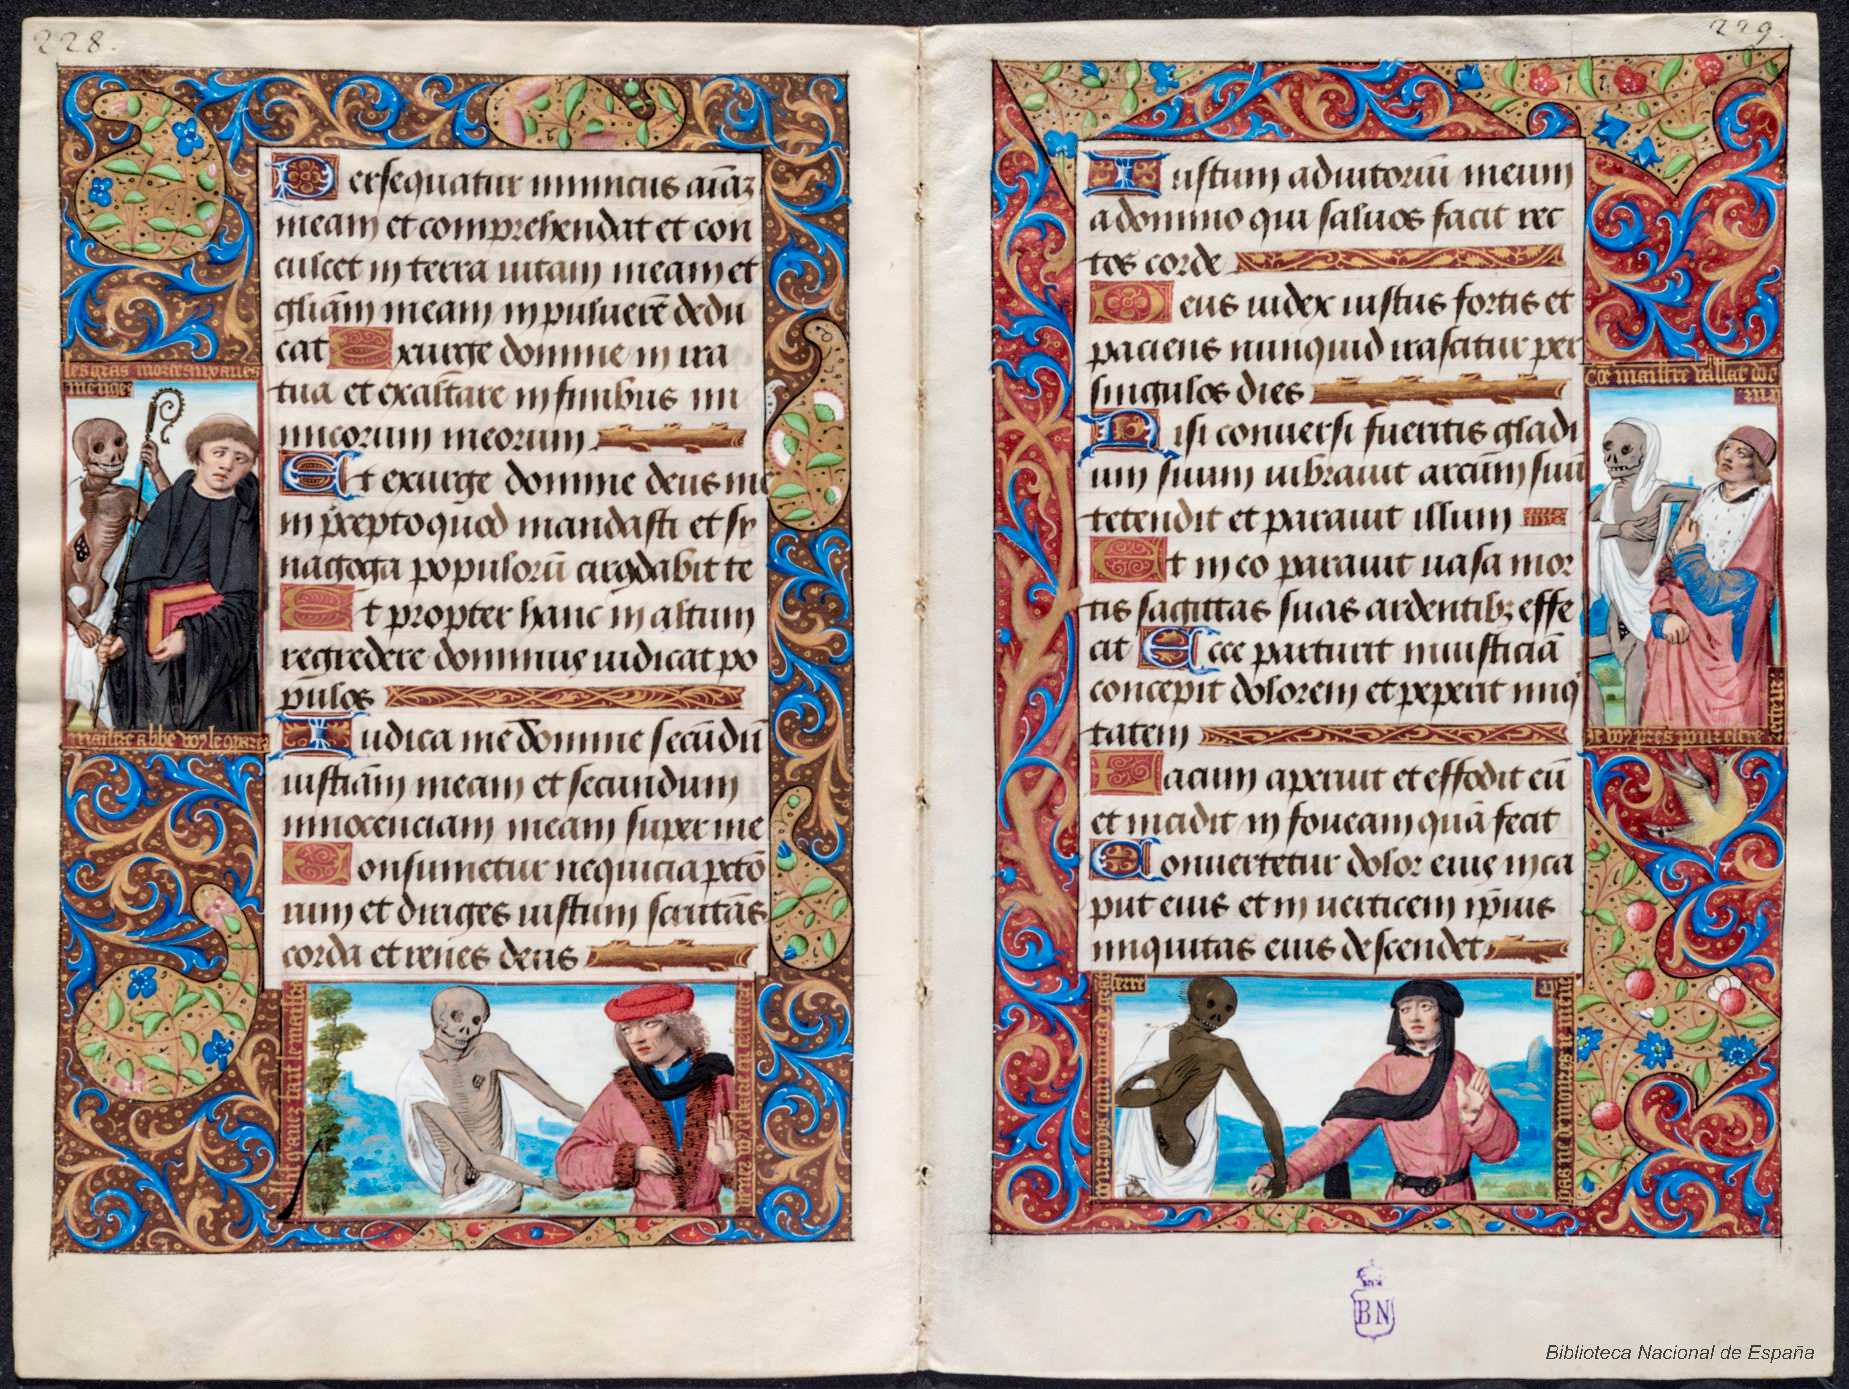 228.
Persequatur inimicus aīāz
meam et comprehendat et con
culcet in terra uitam meam et
gliām meam in puluerē dedu
cat Exurge domine in ira
tua et exaltare in finibus ini
micorum meorum
Et exurge domine deus me
in p̄cepto quod mandasti et sy
nagoga populorū circūdabit te
Et propter hanc in altum
regredere dominus iudicat po
pulos
Iudica me domine secūdū
iusticiām meam et secundum
innocenciam meam super me
Consumetur nequicia petō
rum et diriges iustum scrutās
corda et renes deus
les gras mortz aux vers
menges
maistre abbe
229.
Iustum adiutoriū meum
a domino qui saluos facit rec
tos corde
Deus iudex iustus fortis et
paciens nunquid irascitur per
singulos dies
Nisi conuersi fueritis gladi
um suum uibrauit arcum suū
tetendit et parauit illum
Et in eo parauit uasa mor
tis sagittas suas ardentibz effe
cit Ecce parturit iniusticiā
concepit dolorem et peperit iniq
tatem
Lacum aperuit et effodit eū
et incidit in foueam quā fecit
Conuertetur dolor eius in ca
put eius et in uerticem ip̄ius
iniquitas eius descendet
maistre
terre
BN
Biblioteca Nacional de España